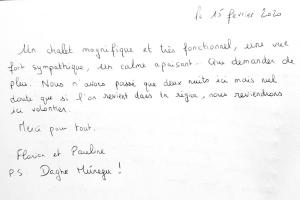 le 15 février 2020
Un chalet magnifique et très fonctionnel, une vue
fort sympathique, un calme apaisant... Que demander de
plus. Nous n'avons passé que deux nuits ici mais nul
doute que si l'on revient dans la région, nous reviendrons
ici volontier.
Merci pour tout.
Florian et Pauline
P.S Daghe !